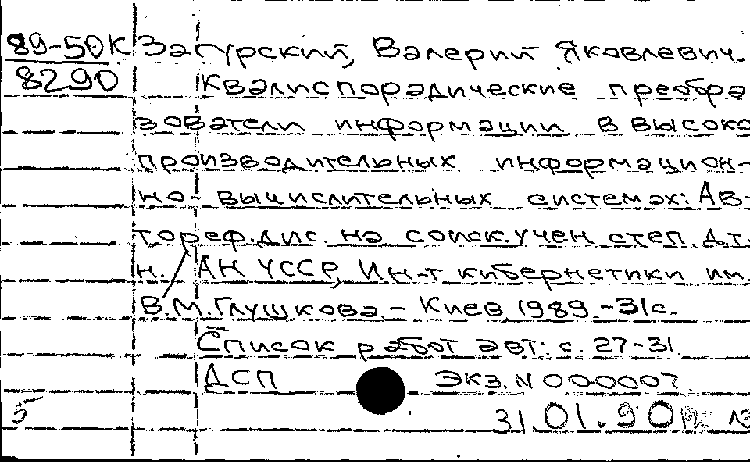 89-50К Загурский, Валерий Яковлевич.
8290 Квалиспорадические преобра
зователи информации в высоко
производительных информацион-
но-вычислительных системах: Ав-
тореф.дис. на соиск.учен.степ. д.т.
н. / АН УССР, Ин-т кибернетики им.
В.М.Глушкова.- Киев, 1989.-31с.
Список работ авт.: с. 27-31.
ДСП ЭКЗ. N 000007.
5 31.01.90